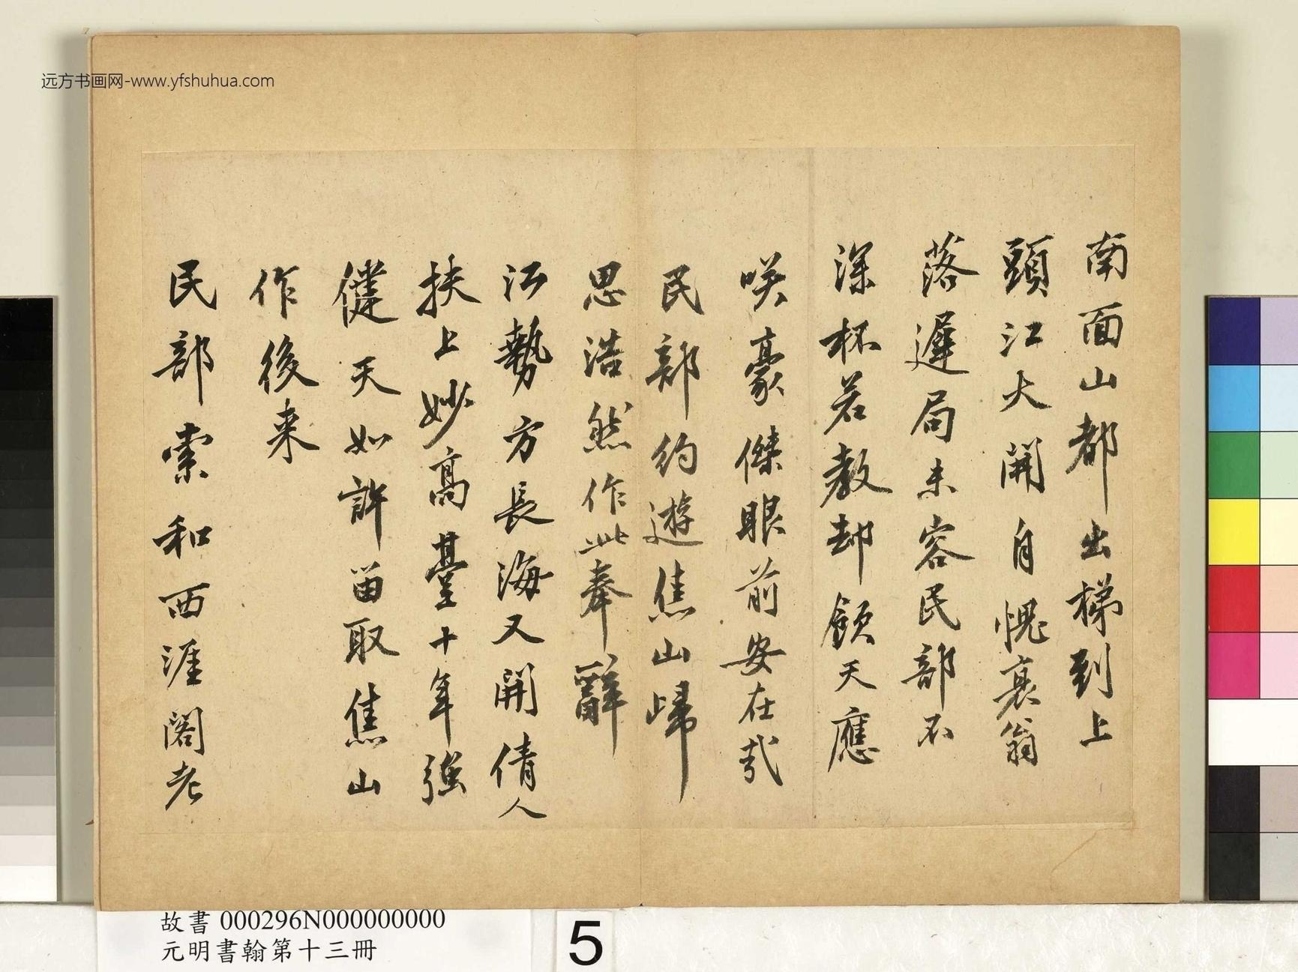 远方书画网-www.yfshuhua.com
南面山都出梯到上
頭江大開自愧衰翁
落遲局未容民部不
深杯若教却領天應
咲豪傑眼前安在哉
民部約遊焦山歸
思浩然作此奉辭
江勢方長海又開倩人
扶上妙高臺十年強
健天如許留取焦山
作後来
民部索和西涯閣老
故書 000296N000000000
元明書翰第十三冊
5